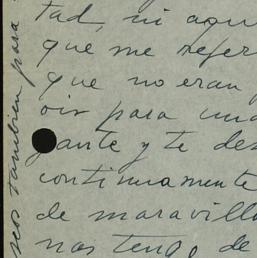 tad, ni aqu
que me refer
que no eran
oir para una
gante y te des
continuamente
de maravilla
nos tengo de
nos tambien para